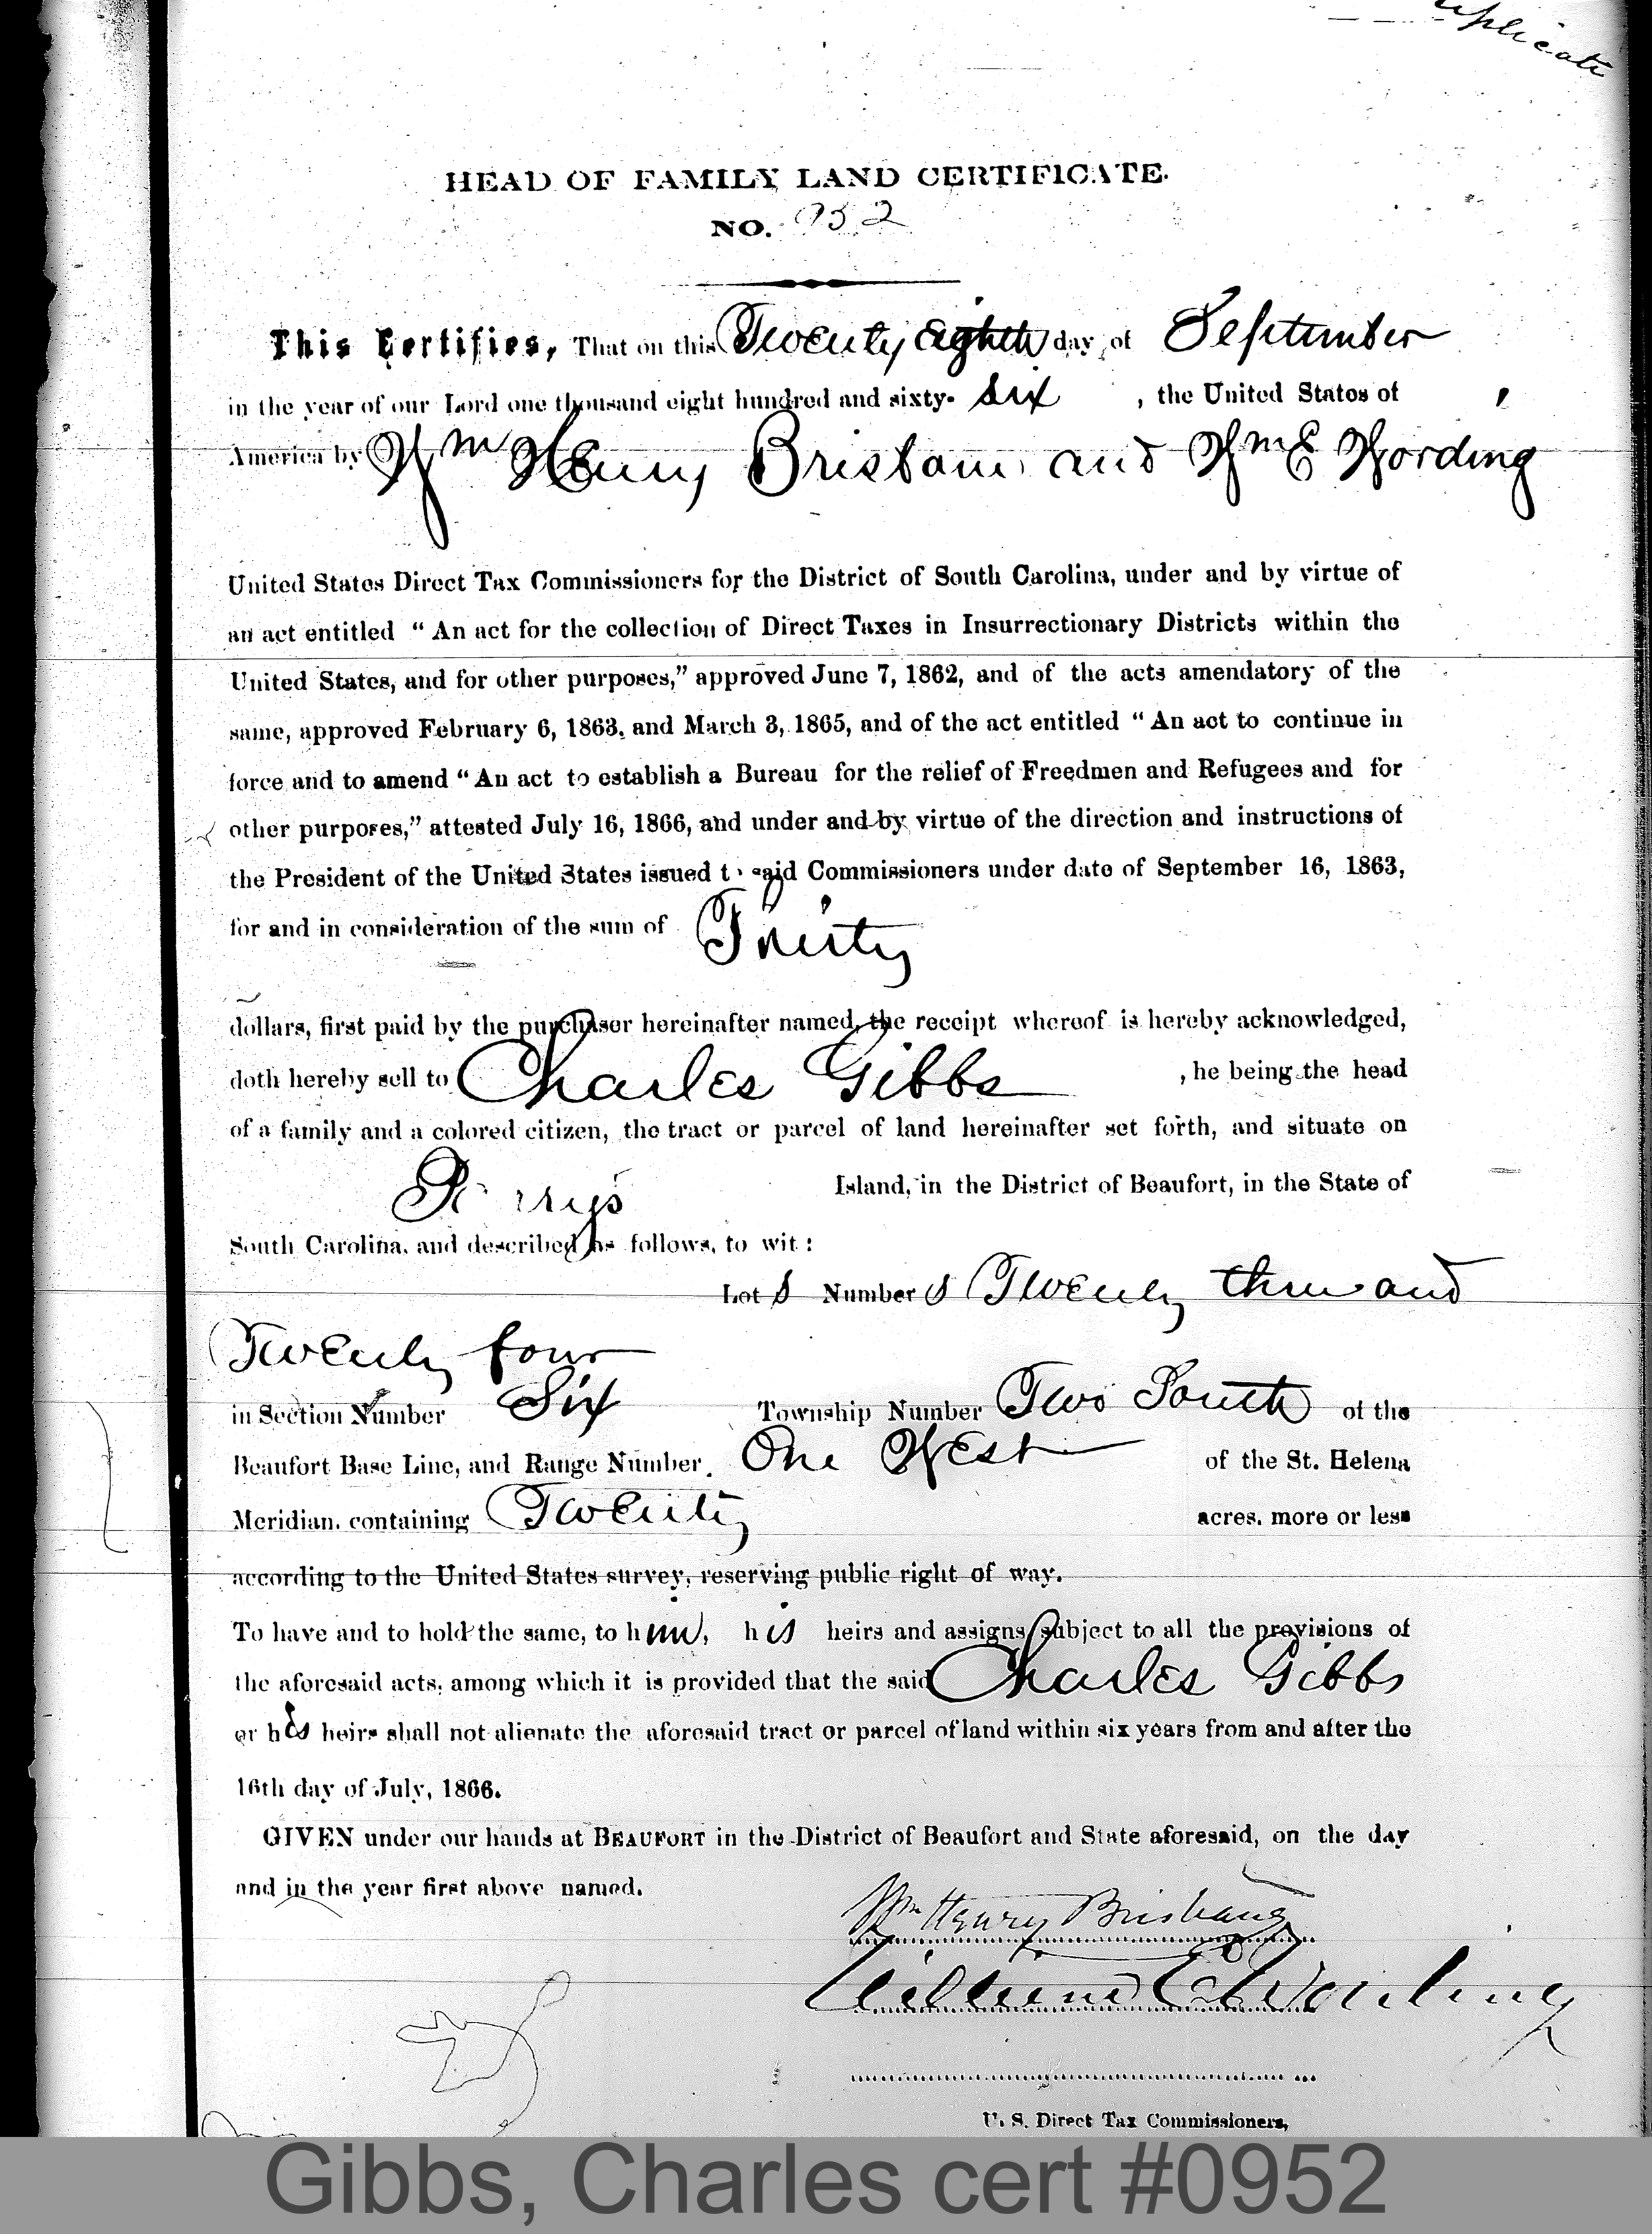 uplicate
HEAD OF FAMILY LAND CERTIFICATE.
NO. 952
This Certifies, That on this Twenty Eighth day of September
in the year of our Lord one thousand eight hundred and sixty- six , the United States of
America by Wm Henry Brisbane and Wm E Wording
United States Direct Tax Commissioners for the District of South Carolina, under and by virtue of
an act entitled "An act for the collection of Direct Taxes in Insurrectionary Districts within the
United States, and for other purposes," approved June 7, 1862, and of the acts amendatory of the
same, approved February 6, 1863, and March 3, 1865, and of the act entitled "An act to continue in
force and to amend "An act to establish a Bureau for the relief of Freedmen and Refugees and for
other purposes," attested July 16, 1866, and under and by virtue of the direction and instructions of
the President of the United States issued to said Commissioners under date of September 16, 1863,
for and in consideration of the sum of Thirty
dollars, first paid by the purchaser hereinafter named, the receipt whereof is hereby acknowledged,
doth hereby sell to Charles Gibbs , he being the head
of a family and a colored citizen, the tract or parcel of land hereinafter set forth, and situate on
Island, in the District of Beaufort, in the State of
South Carolina, and described as follows, to wit:
Lot s Number s Twenty three and
Twenty four
in Section Number Six Township Number Two South of the
Beaufort Base Line, and Range Number One West of the St. Helena
Meridian, containing Twenty acres, more or less
according to the United States survey, reserving public right of way.
To have and to hold the same, to him, his heirs and assigns subject to all the provisions of
the aforesaid acts, among which it is provided that the said Charles Gibbs
or his heirs shall not alienate the aforesaid tract or parcel of land within six years from and after the
16th day of July, 1866.
GIVEN under our hands at BEAUFORT in the District of Beaufort and State aforesaid, on the day
and in the year first above named.
Wm Henry Brisbane
William E Wording
U. S. Direct Tax Commissioners,
Gibbs, Charles cert #0952